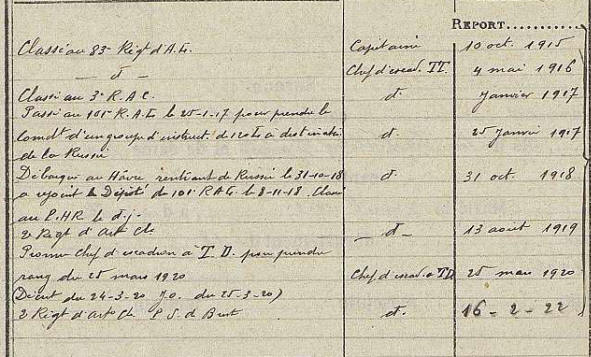 REPORT............
Classé au 83e Régt d'A.L. Capitaine 10 oct. 1915
_ d _ Chef d'escad. TT. 4 mai 1916
Classé au 3e R.A.C. d. Janvier 1917
Passé au 101e R.A.L le 25-1-17 pour prendre le
comdt d'un groupe d'instruct. de 120 L à destination d. 25 Janvier 1917
de la Russie
Débarqué au Hâvre rentrant de Russie le 31-10-18 d. 31 oct. 1918
a rejoint le Dépôt du 101e RAL le 8-11-18. Classé
au P.H.R le d.j.
2 Régt d'art Cle _ d _ 13 aout 1919
Promu Chef d'escadron à T.D. pour prendre
rang du 25 mars 1920 Chef d'escad. à TD 25 mars 1920
(Décret du 24-3-20 J.O. du 25-3-20)
2 Régt d'art Cle P.S. d d. 16-2-22